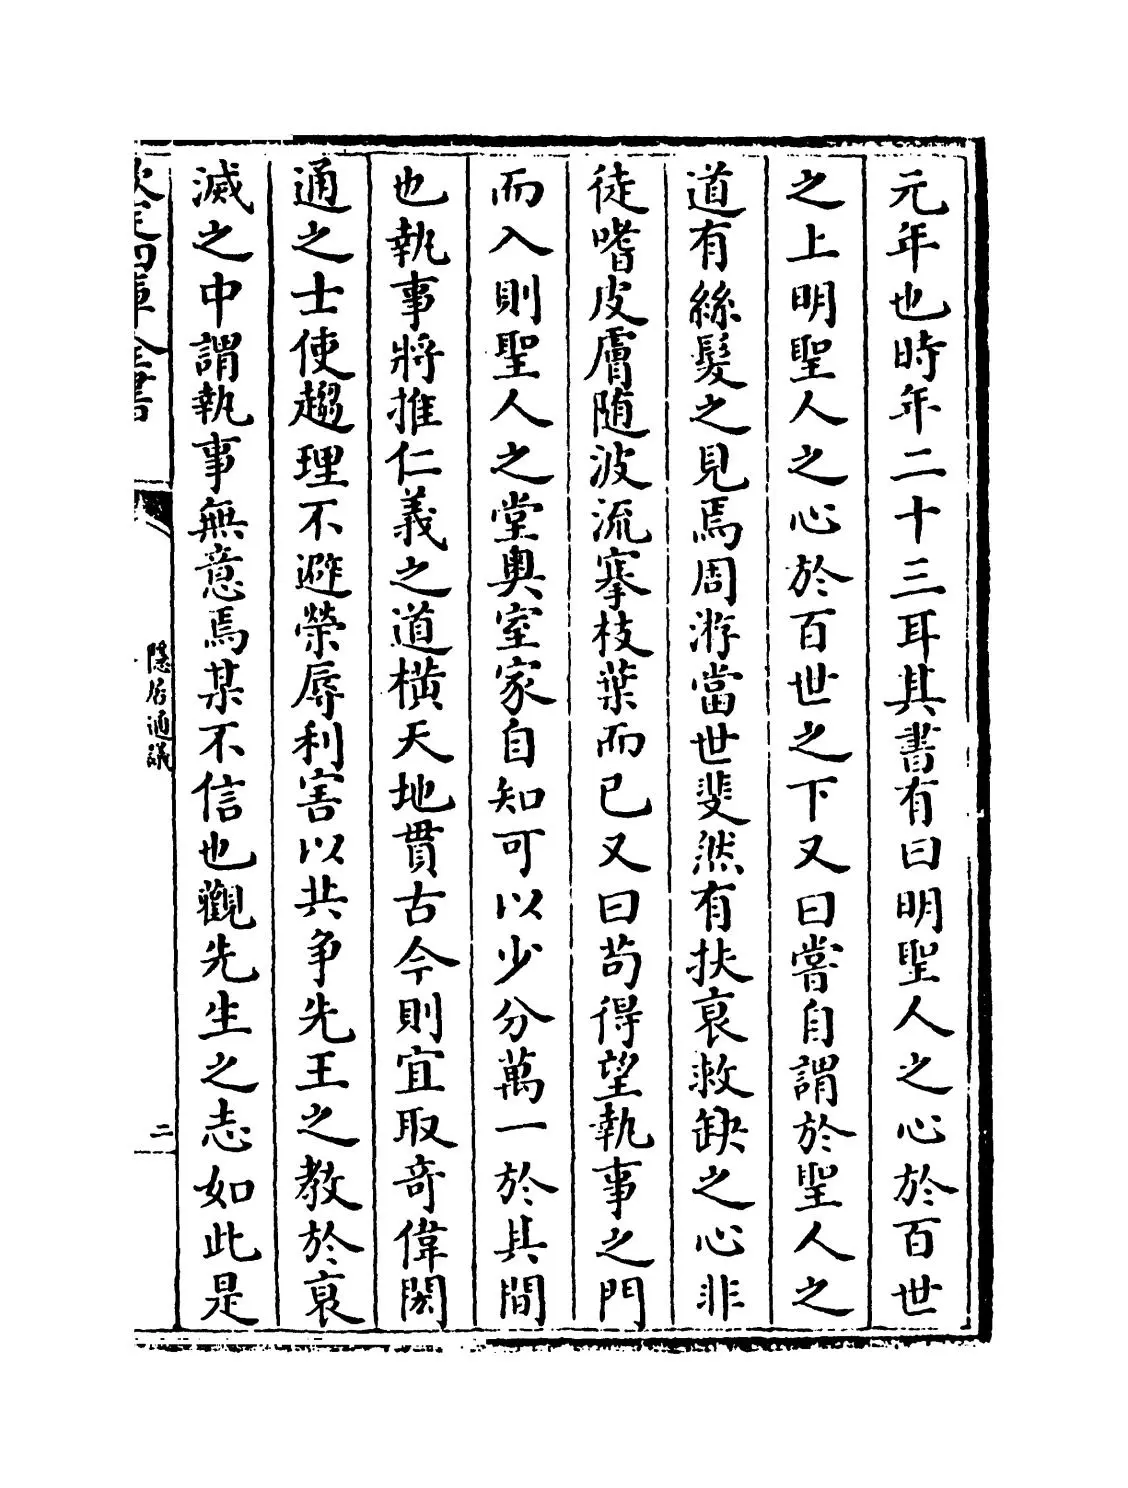 元年也時年二十三耳其書有曰明聖人之心於百世
之上明聖人之心於百世之下又曰嘗自謂於聖人之
道有絲髮之見焉周游當世斐然有扶衰救缺之心非
徒嗜皮膚随波流搴枝葉而已又曰苟得望執事之門
而入則聖人之堂奥室家自知可以少分萬一於其間
也執事將推仁義之道橫天地貫古今則宜取奇偉閎
通之士使趨理不避榮辱利害以共争先王之教於衰
滅之中謂執事無意焉某不信也觀先生之志如此是
欽定四庫全書
隱居通議
二